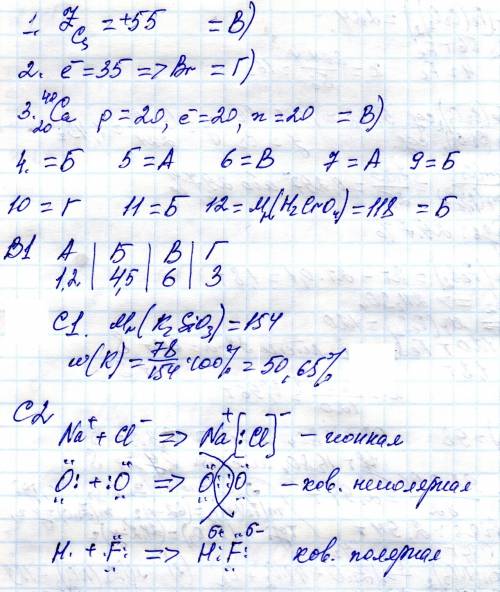 1. Z Cs = +55 = В)
2. ē = 35 => Br = Г)
3. ⁴⁰₂₀Ca p = 20, ē = 20, n = 20 = В)
4. = Б 5 = А 6 = В 7 = А 9 = Б
10 = Г 11 = Б 12 = Mr(H₂CrO₄) = 118 = Б
В1 А | Б | В | Г
1,2 | 4,5 | 6 | 3
С1. Mr(K₂SiO₃) = 154
w(K) = 78/154 · 100% = 50,65%
С2
Na⁺ + Cl⁻ => Na⁺[:Cl]⁻ – ионная
Ö: + :Ö => Ö::Ö – ков. неполярная
H. + .F: => H:F: ков. полярная
δ+ δ-